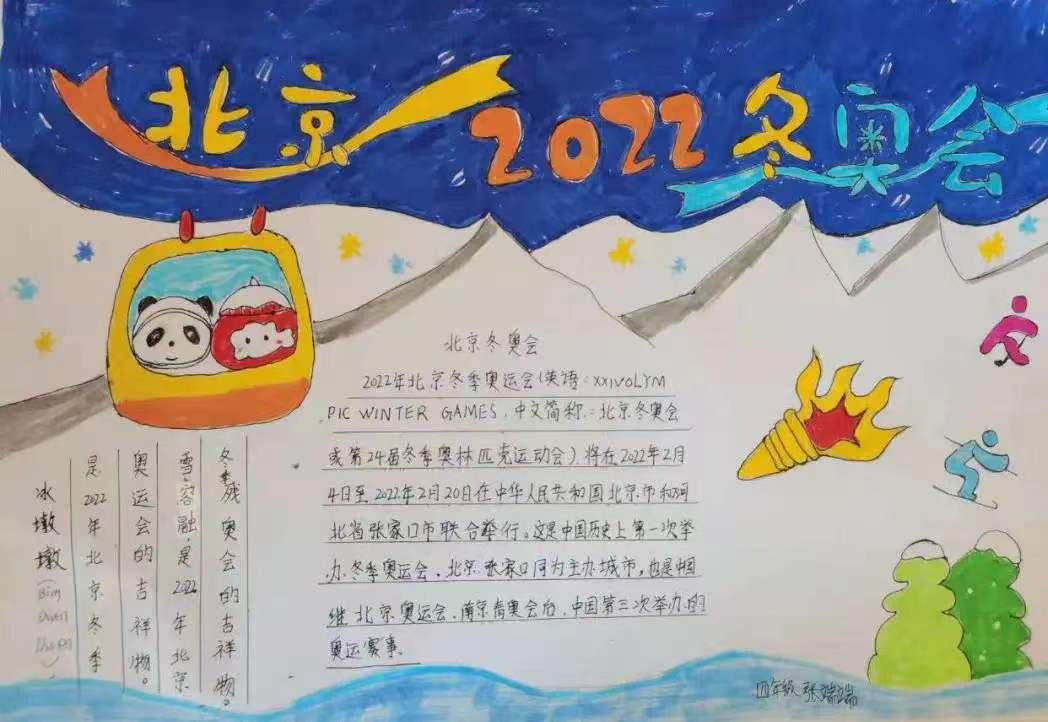 北京2022冬奥会
冰墩墩
是2022年北京冬季
奥运会的吉祥物。
雪容融是2022年北京
冬季残奥会的吉祥物。
北京冬奥会
2022年北京冬季奥运会(英语:XXIVOLYM
PIC WINTER GAMES,中文简称:北京冬奥会
或第24届冬季奥林匹克运动会),将在2022年2月
4日至2022年2月20日在中华人民共和国北京市和河
北省张家口市联合举行。这是中国历史上第一次举
办冬季奥运会、北京、张家口同为主办城市,也是中国
继北京奥运会、南京青奥会后,中国第三次举办的
奥运赛事.
四年级 张端端